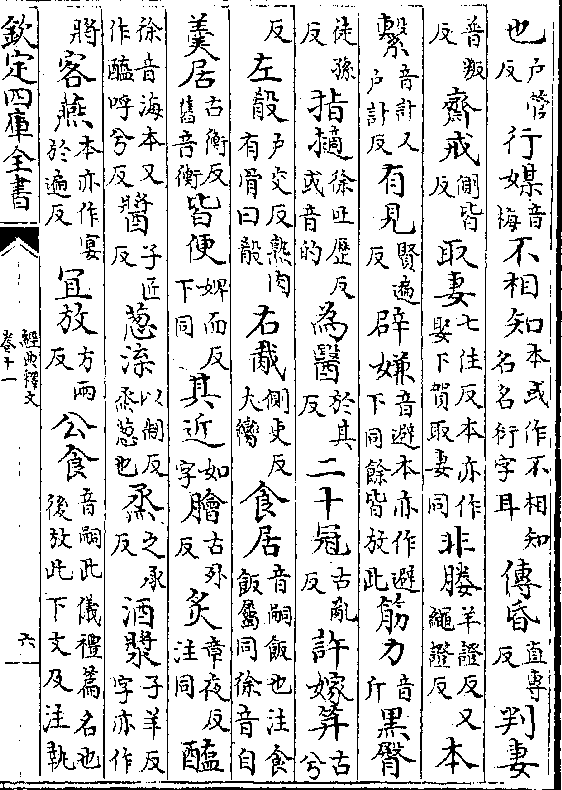 也户管反行媒音梅不相知本或作不相知名名衍字耳傳昏直專反判妻
普叛反齋戒側皆反取妻七住反本亦作娶下賀取妻同非媵羊證反又繩證反本
繫音計又户計反有見賢遍反辟嫌音避本亦作避下同餘皆放此筋力音斤黒臀
徒孫反指擿徐吐歷反或音的為醫於其反二十冠古亂反許嫁笄古兮
反左殽户交反熟肉有骨曰殽右胾側吏反大臠食居音嗣飯也注食飯屬同徐音自
羹居古衡反舊音衡皆便婢面反下同其近如字膾古外反炙章夜反注同醯
徐音海本又作醢呼兮反醬子匠反葱渫以制反烝葱也烝之承反酒漿子羊反字亦作
將客燕本亦作宴於遍反宜放方兩反公食音嗣此儀禮篇名也後放此下文及注執
欽定四庫全書
經典釋文
卷十一
六